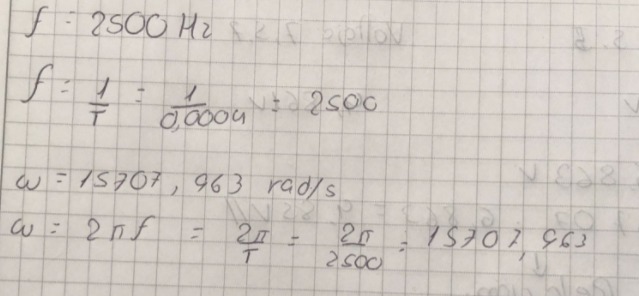 f = 2500 Hz
f = 1/T = 1/0,0004 = 2500
ω = 15707, 963 rad/s
ω = 2πf = 2π/T = 2π/2500 = 15707, 963